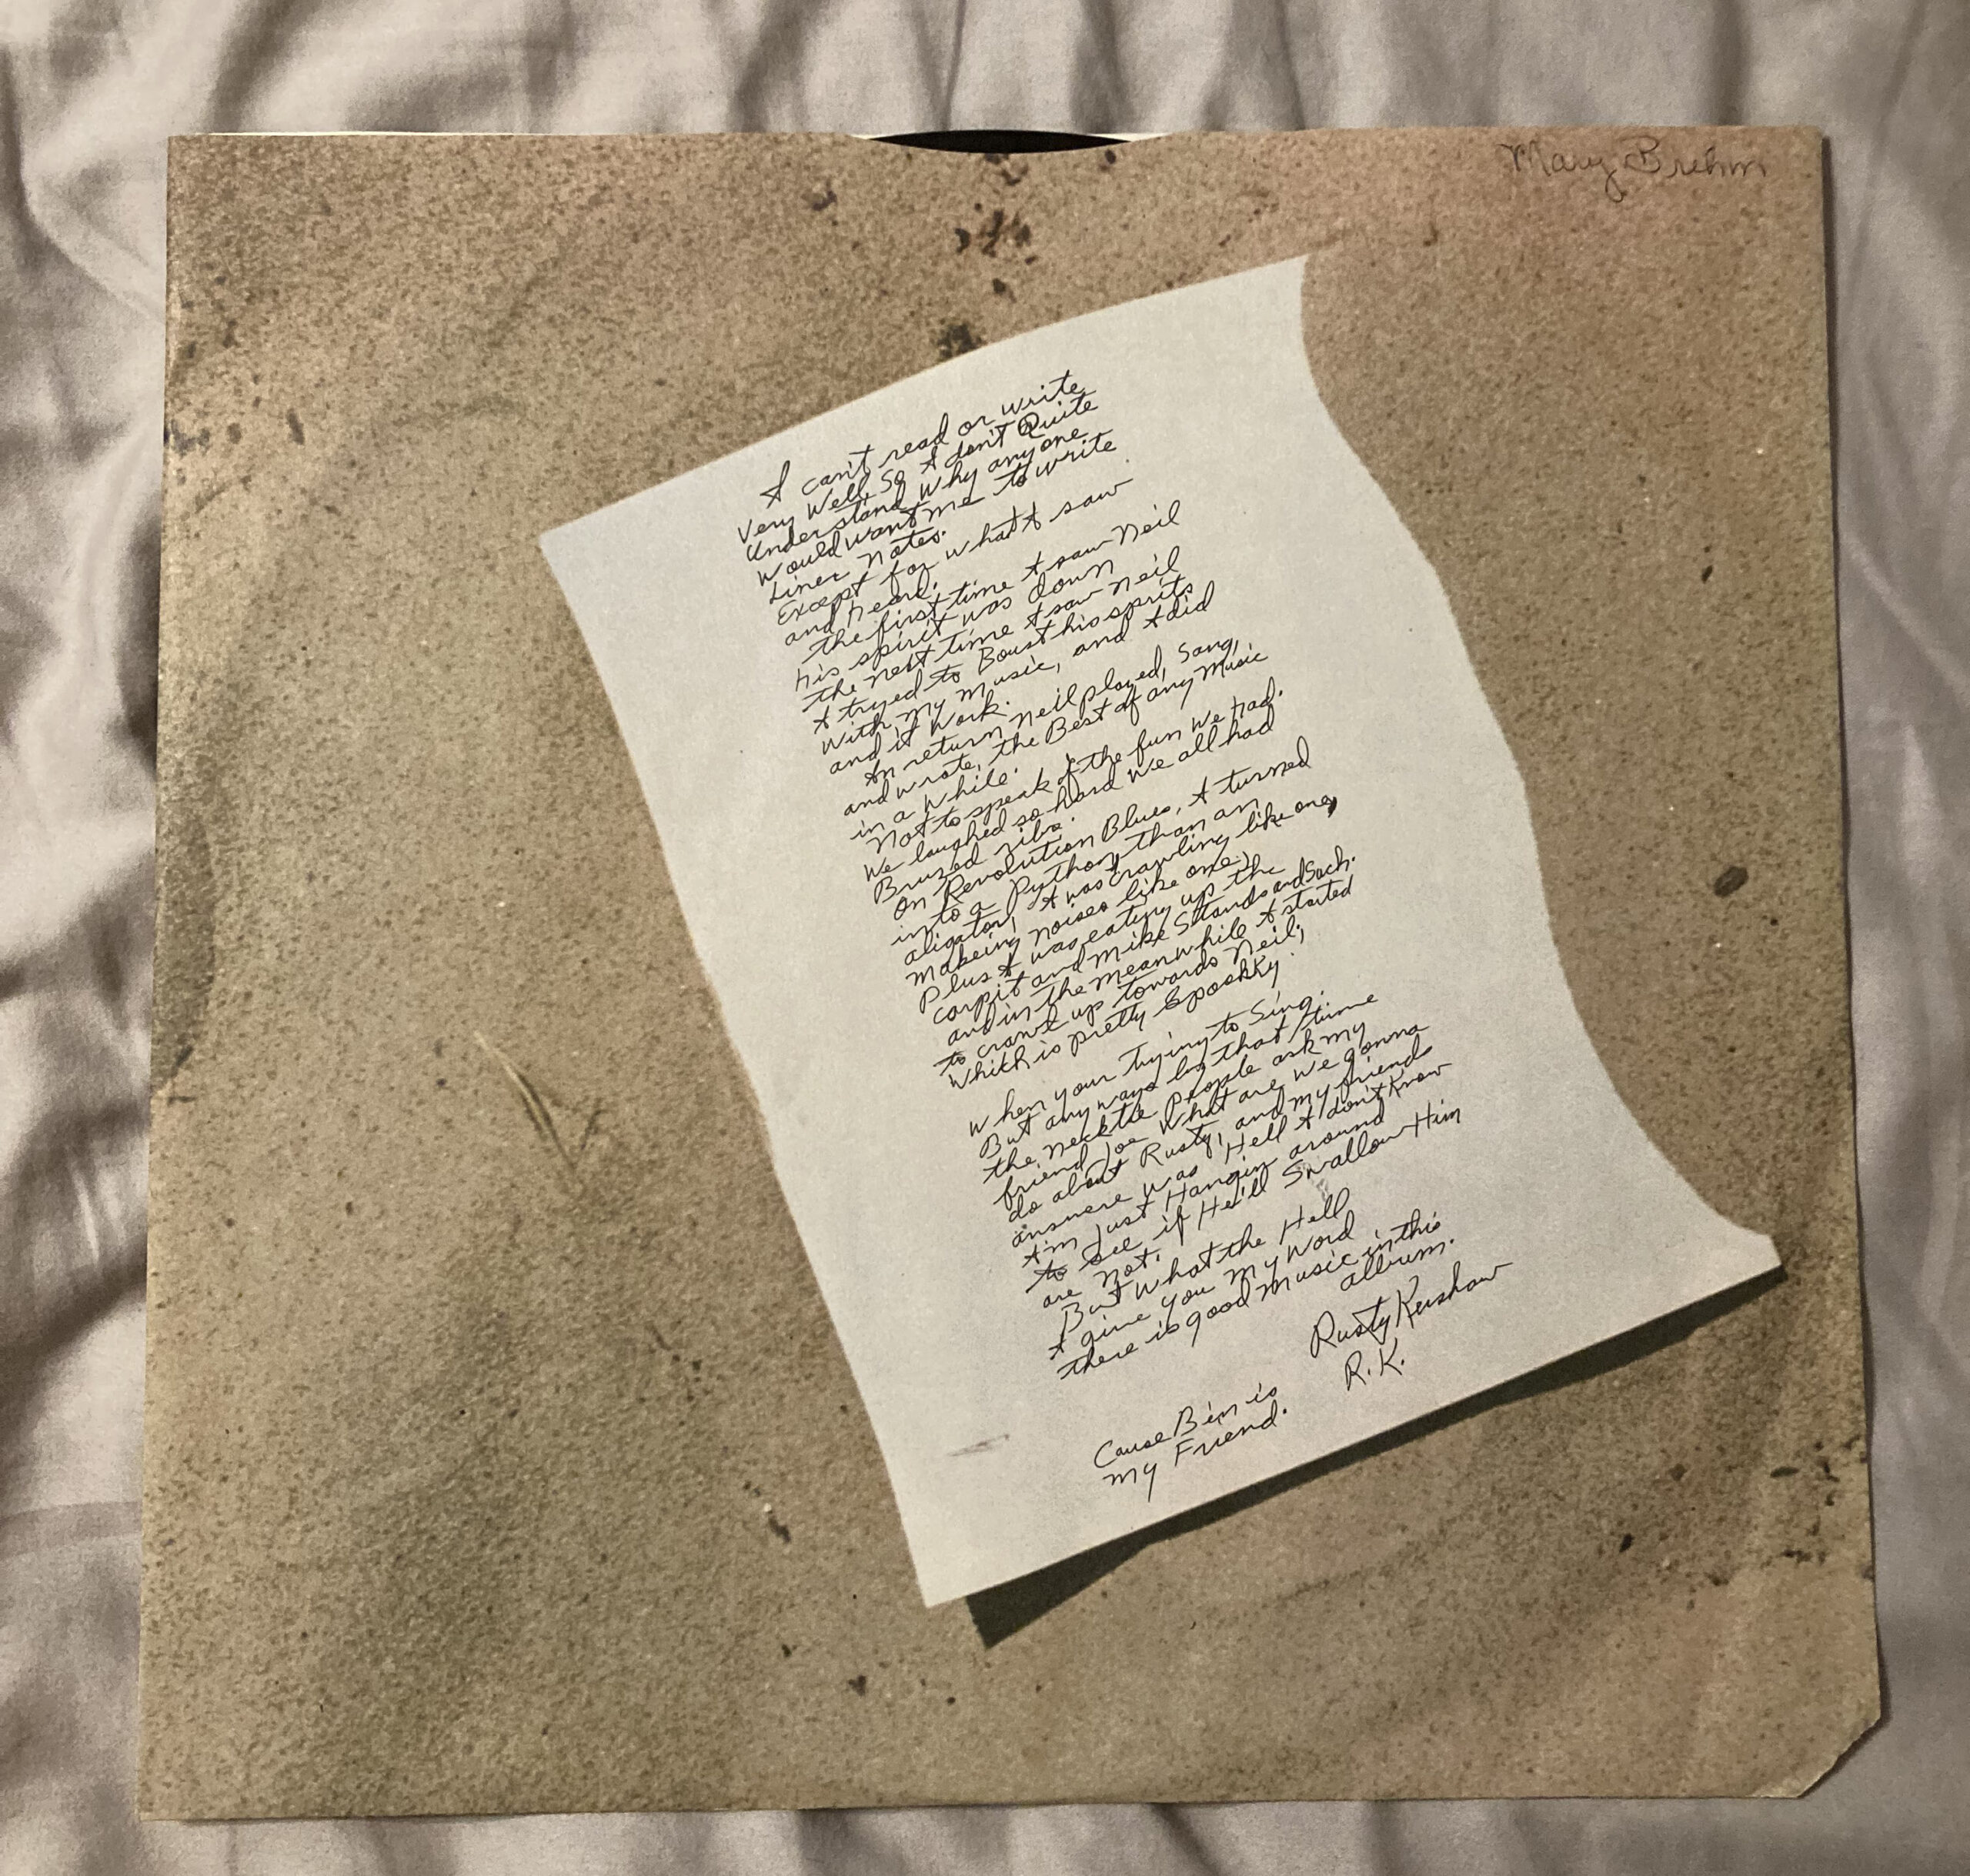 Mary Brehm
I can't read or write
Very Well, So I don't Quite
Understand Why anyone
Would want me to write
Liner Notes.
Except for what I saw
and heard.
the first time I saw Neil
his spirit was down
the next time I saw Neil
I tryed to Boust his spirits
with my Music, and I did
and it work.
In return Neil played, Sang,
and wrote, the Best of any Music
in a while.
Not to speak of the fun we had.
We laughed so hard we all had
Bruzed ribs.
On Revolution Blues, I turned
into a Python, than an
aligator, I was crawling like one,
makeing noises like one,
Plus I was eating up the
carpit and mike Stands and Such.
and in the meanwhile I started
to crawl up towards Neil,
Whith is pretty Spookky.
When your trying to Sing.
But any ways by that time
the necktie people ask my
friend Joe What are we gonna
do about Rusty, and my friends
answere was Hell I don't Know
I'm Just Hangin around
to see if He'll Swallow Him
are not.
But What the Hell
I give you my Word
there is good Music in this
album.
Rusty Kershaw
R.K.
Cause Ben is
my Friend.